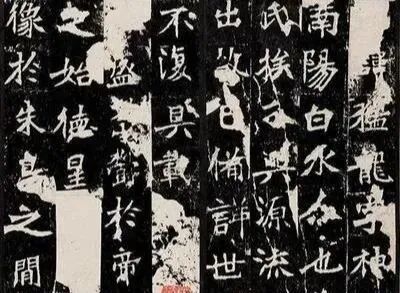 猛龍字神
南陽白水人也
氏族分興源流
出故已備詳世
不復具載
盛於帝
之始德星
像於朱鳥之間